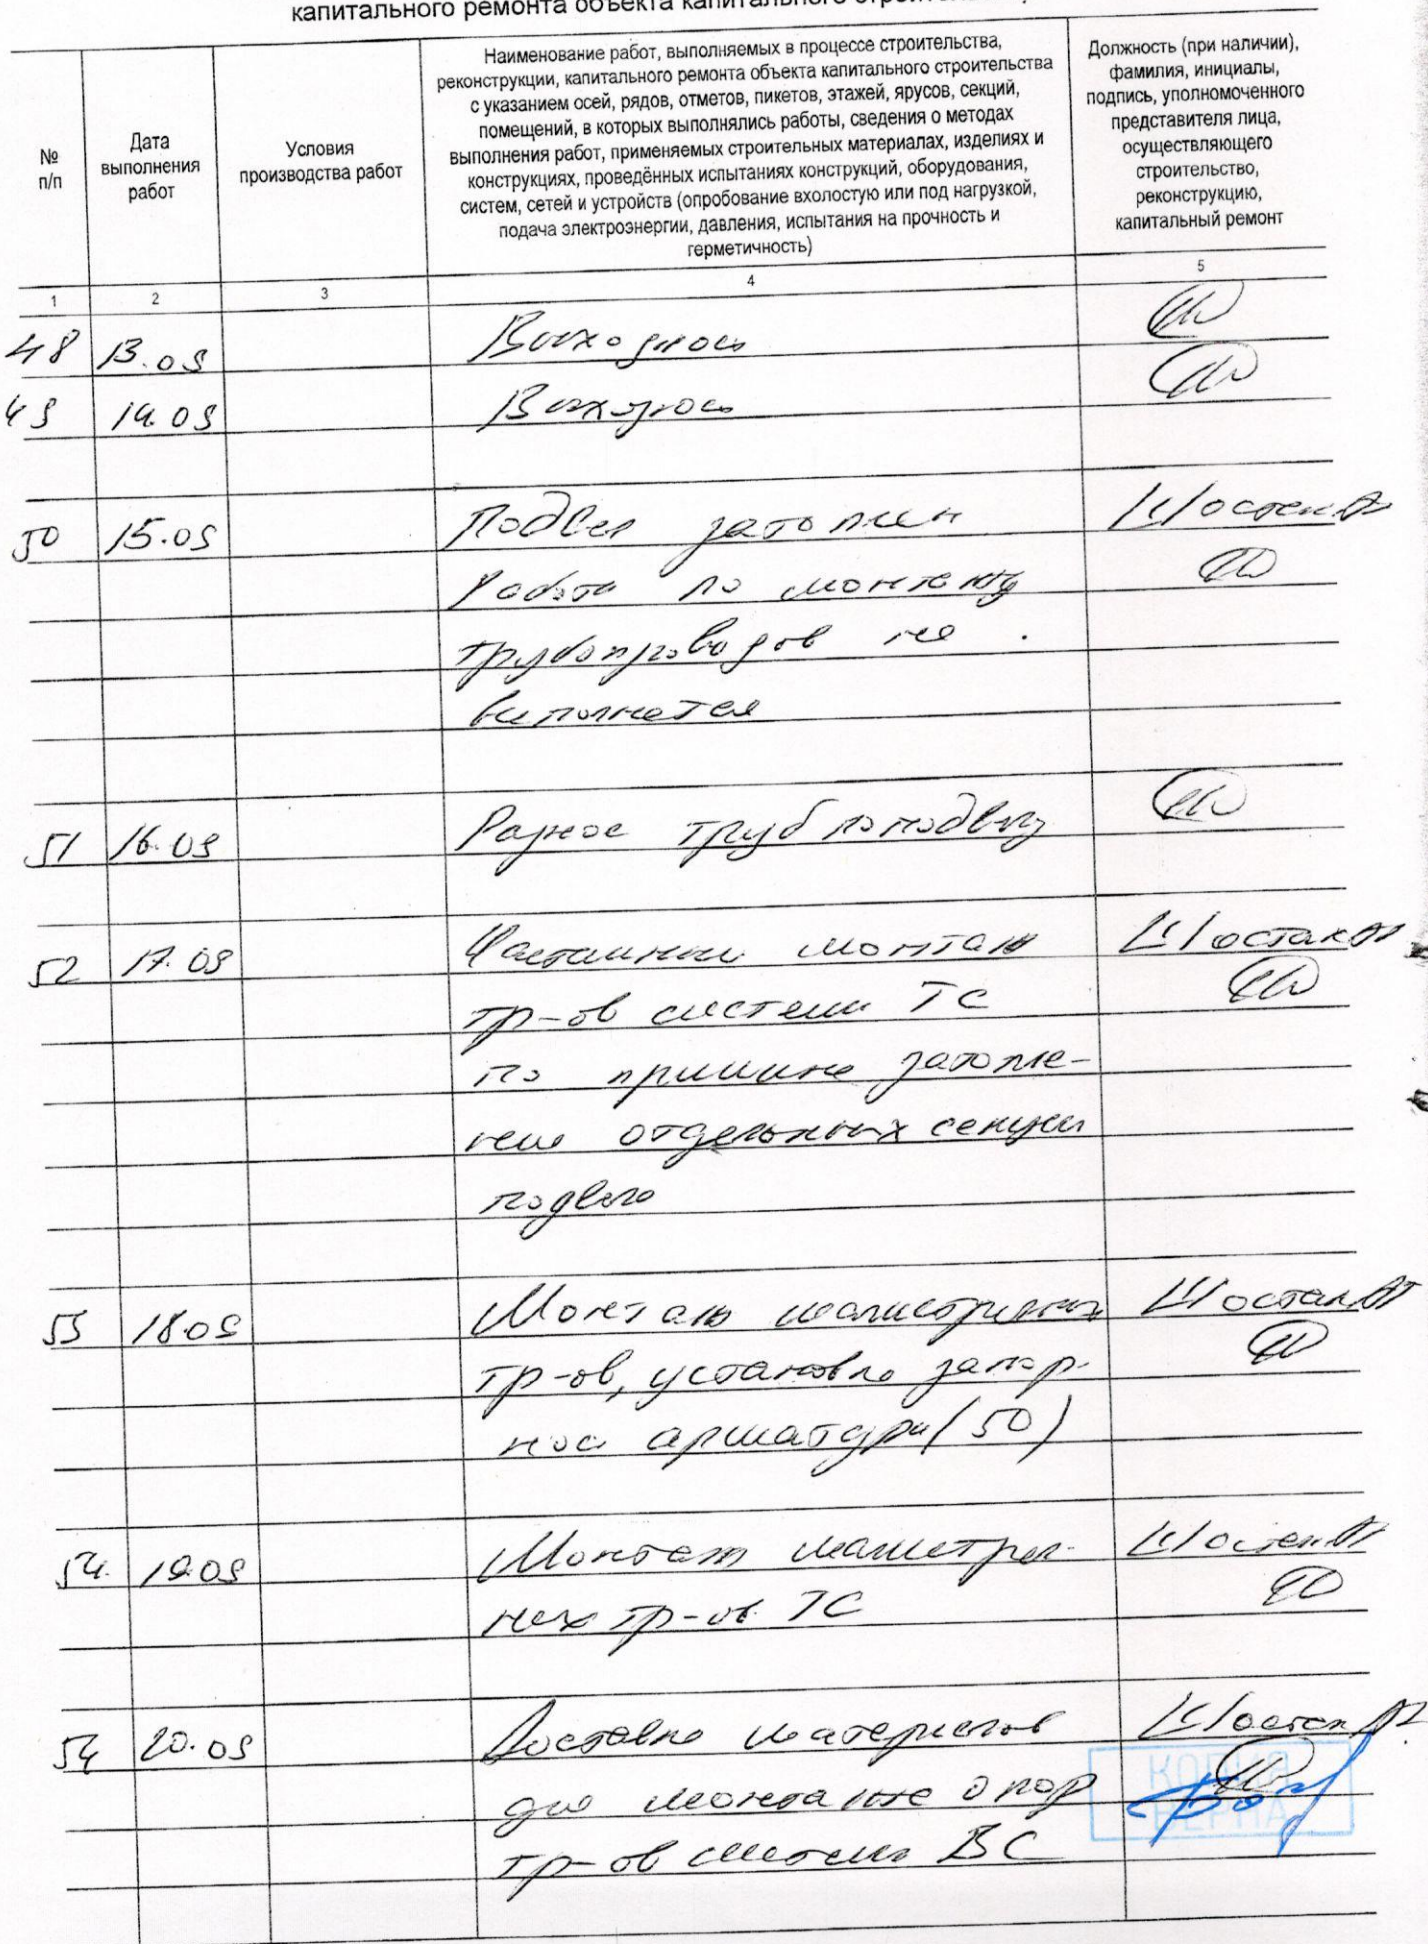 капитального ремонта объекта капитального
№ п/п
Дата
выполнения
работ
Условия
производства работ
Наименование работ, выполняемых в процессе строительства,
реконструкции, капитального ремонта объекта капитального строительства
с указанием осей, рядов, отметов, пикетов, этажей, ярусов, секций,
помещений, в которых выполнялись работы, сведения о методах
выполнения работ, применяемых строительных материалах, изделиях и
конструкциях, проведённых испытаниях конструкций, оборудования,
систем, сетей и устройств (опробование вхолостую или под нагрузкой,
подача электроэнергии, давления, испытания на прочность и
герметичность)
Должность (при наличии),
фамилия, инициалы,
подпись, уполномоченного
представителя лица,
осуществляющего
строительство,
реконструкцию,
капитальный ремонт
1 2 3 4 5
48 13.09 Выходной
49 14.09 Выходной
50 15.09 Подвал затоплен Шостак
Работа по монтажу
трубопроводов не
выполняется
51 16.09 Разнос труб по подвалу
52 17.09 Частичный монтаж Шостак
тр-ов системы ТС
по причине затопле-
ния отдельных секций
подвала
53 18.09 Монтаж магистральных Шостак
тр-ов, установка запор-
ной арматуры (50)
54. 19.09 Монтаж магистраль-  Шостак
ных тр-ов ТС
54 20.09 Доставка материалов Шостак
для монтажа опор
тр-ов системы ВС
КОПИЯ
ВЕРНА